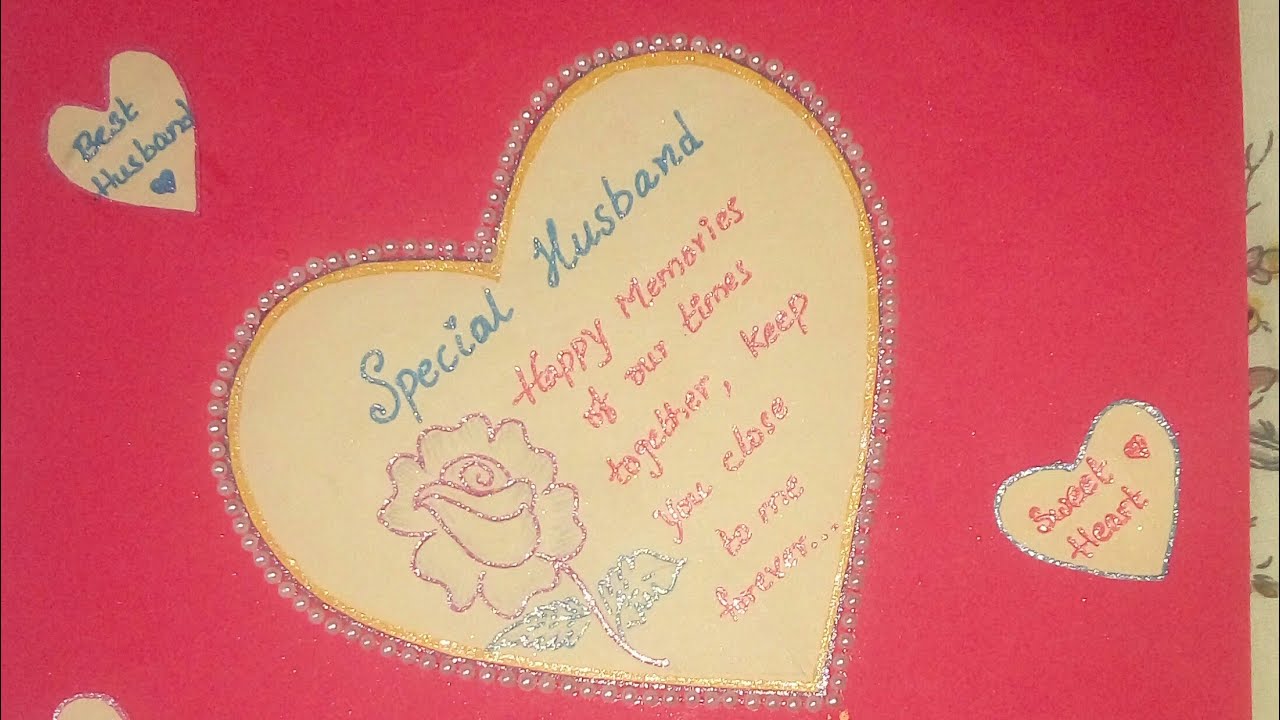 Best
Husband
Special Husband
Happy Memories
of our times
together, keep
you close
to me
forever...
Sweet
Heart